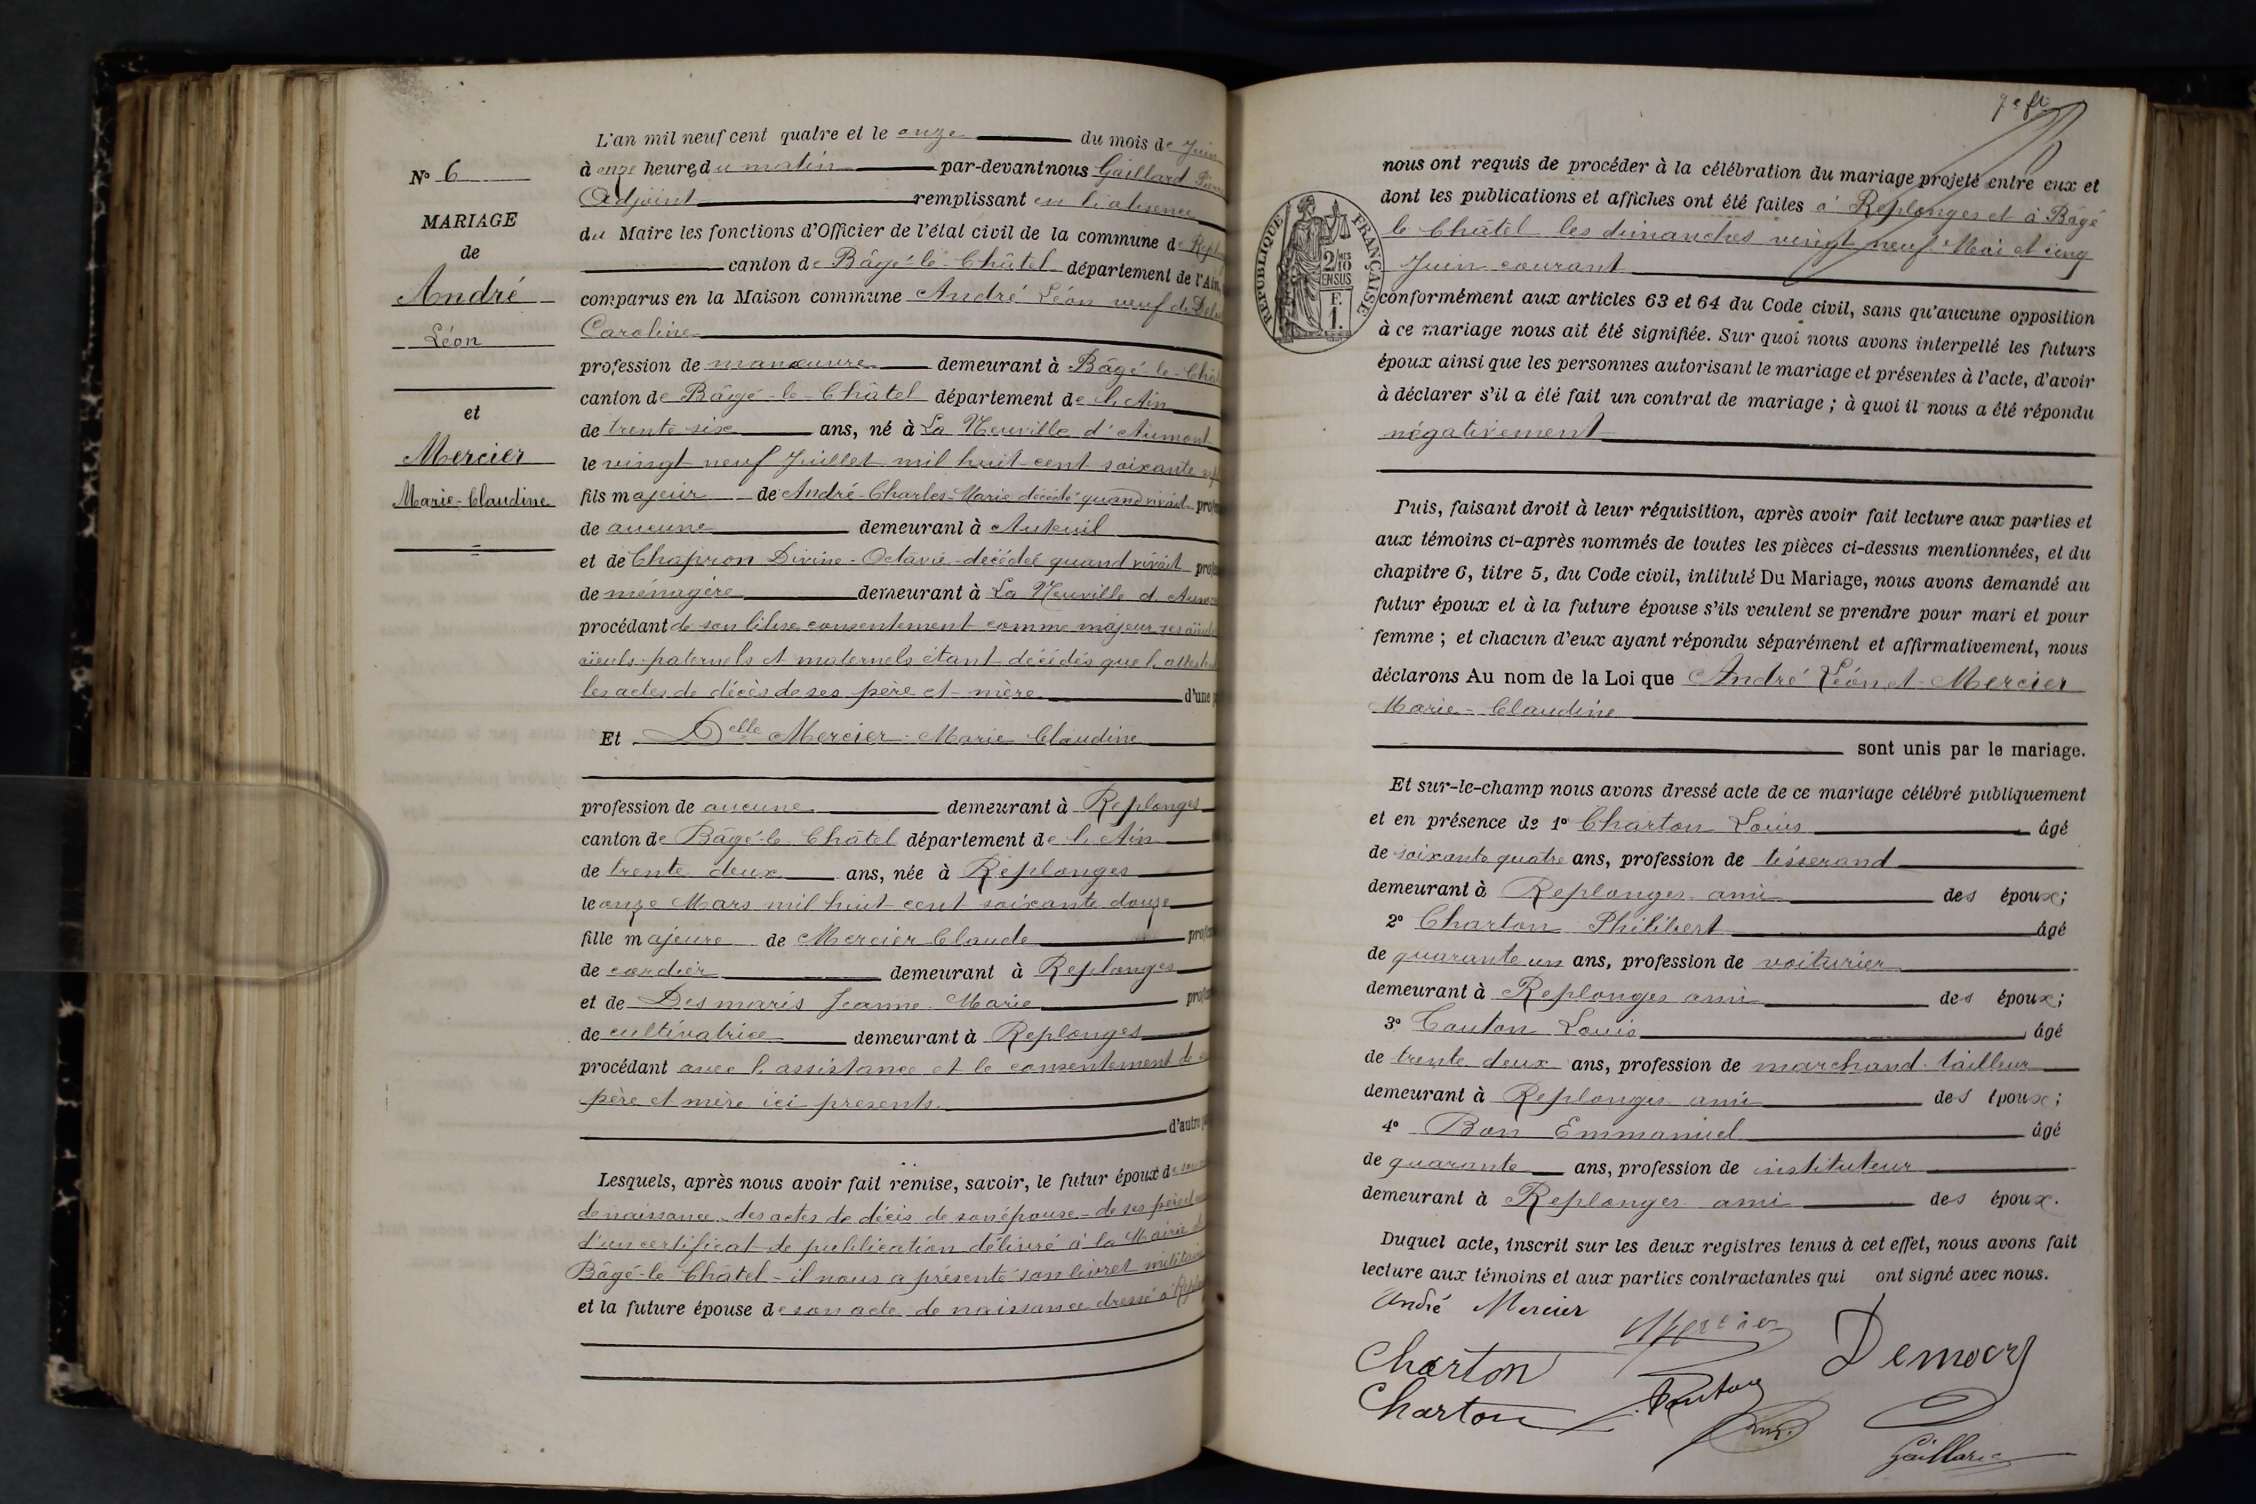 L'an mil neuf cent quatre et le onze du mois de Juin
à onze heures du matin par-devant nous Gaillard
Adjoint remplissant en l'absence
du Maire les fonctions d'Officier de l'état civil de la commune de Repl
canton de Bâgé-le-Châtel département de l'Ain,
comparus en la Maison commune André Léon veuf de
Caroline
profession de manœuvre demeurant à Bâgé-le-Chât
canton de Bâgé-le-Châtel département de l'Ain
de trente six ans, né à La Neuville d'Aumont
le vingt neuf Juillet mil huit cent soixante
fils majeur de André-Charles-Marie décédé quand vivait
de aucune demeurant à Auteuil
et de Chapron Divine-Octavie décédée quand vivait
de ménagère demeurant à La Neuville d'Aum
procédant de son libre consentement comme majeur ses
aïeuls paternels et maternels étant décédés que l'attest
les actes de décès de ses père et mère d'une
Et Delle Mercier Marie Claudine
profession de aucune demeurant à Replonges
canton de Bâgé-le-Châtel département de l'Ain
de trente deux ans, née à Replonges
le onze Mars mil huit cent soixante douze
fille majeure de Mercier Claude
de cordier demeurant à Replonges
et de Desmaris Jeanne Marie
de cultivatrice demeurant à Replonges
procédant avec l'assistance et le consentement de
père et mère ici présents
d'autre
Lesquels, après nous avoir fait remise, savoir, le futur époux de
de naissance, des actes de décès de son épouse - de ses père et
d'un certificat de publication délivré à la Mairie de
Bâgé-le-Châtel - il nous a présenté son livret militaire
et la future épouse de son acte de naissance dressé à Repl
N° 6
MARIAGE
de
André
Léon
et
Mercier
Marie-Claudine
nous ont requis de procéder à la célébration du mariage projeté entre eux et
dont les publications et affiches ont été faites à Replonges et à Bâgé
le Châtel les dimanches vingt neuf Mai et cinq
Juin courant
conformément aux articles 63 et 64 du Code civil, sans qu'aucune opposition
à ce mariage nous ait été signifiée. Sur quoi nous avons interpellé les futurs
époux ainsi que les personnes autorisant le mariage et présentes à l'acte, d'avoir
à déclarer s'il a été fait un contrat de mariage ; à quoi il nous a été répondu
négativement
Puis, faisant droit à leur réquisition, après avoir fait lecture aux parties et
aux témoins ci-après nommés de toutes les pièces ci-dessus mentionnées, et du
chapitre 6, titre 5, du Code civil, intitulé Du Mariage, nous avons demandé au
futur époux et à la future épouse s'ils veulent se prendre pour mari et pour
femme ; et chacun d'eux ayant répondu séparément et affirmativement, nous
déclarons Au nom de la Loi que André Léon et Mercier
Marie-Claudine
sont unis par le mariage.
Et sur-le-champ nous avons dressé acte de ce mariage célébré publiquement
et en présence de 1° Charton Louis âgé
de soixante quatre ans, profession de tisserand
demeurant à Replonges ami des époux;
2° Charton Philibert âgé
de quarante un ans, profession de voiturier
demeurant à Replonges ami des époux;
3° Couton Louis âgé
de trente deux ans, profession de marchand tailleur
demeurant à Replonges ami des époux;
4° Bon Emmanuel âgé
de quarante ans, profession de instituteur
demeurant à Replonges ami des époux.
Duquel acte, inscrit sur les deux registres tenus à cet effet, nous avons fait
lecture aux témoins et aux parties contractantes qui ont signé avec nous.
André Mercier
Mercier
Charton
Charton
Gaillard
RÉPUBLIQUE FRANÇAISE